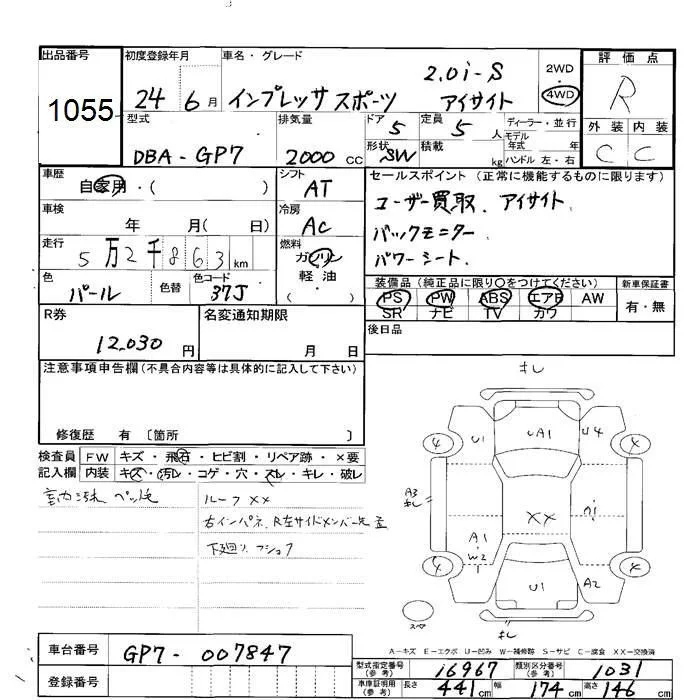 出品番号
1055
初度登録年月
24 6月
車名・グレード
インプレッサ スポーツ
2.0i-S
アイサイト
2WD
4WD
評価点
R
外装 内装
C C
型式
DBA-GP7
排気量
2000 CC
ドア 5
形状 SW
定員 5 人
積載 kg
ディーラー・並行
モデル年式 年式
ハンドル 左・右
車歴
自家用・( )
シフト
AT
車検
年 月( 日)
冷房
AC
走行
5万2千863 km
燃料
ガソリン
軽油
( )
色
パール
色替
色コード
37J
セールスポイント (正常に機能するものに限ります)
ユーザー買取、アイサイト、
バックモニター
パワーシート、
装備品(純正品に限り○をつけてください)
PS PW ABS エアB AW
SR ナビ TV カワ
新車保証書
有・無
後日品
R券
12,030 円
名変通知期限
月 日
注意事項申告欄(不具合内容等は具体的に記入して下さい)
修復歴 有 〔箇所 〕
検査員記入欄
FW キズ・飛石・ヒビ割・リペア跡・×要
内装 キズ・汚レ・コゲ・穴・スレ・キレ・破レ
ルーフXX
右インパネ、R左サイドメンバー先
下廻リ
キレ
4 U1 UA1 U4 4
A3
キレ
XX
A1
W2
4 U1 A2 4
スペア
キレ
A-キズ E-エクボ U-凹み W-補修跡 S-サビ C-腐食 XX-交換済
車台番号
GP7-007847
登録番号
型式指定番号(参考) 16967
類別区分番号(参考) 1031
車庫証明用(参考) 長さ 441cm 幅 174cm 高さ 146cm